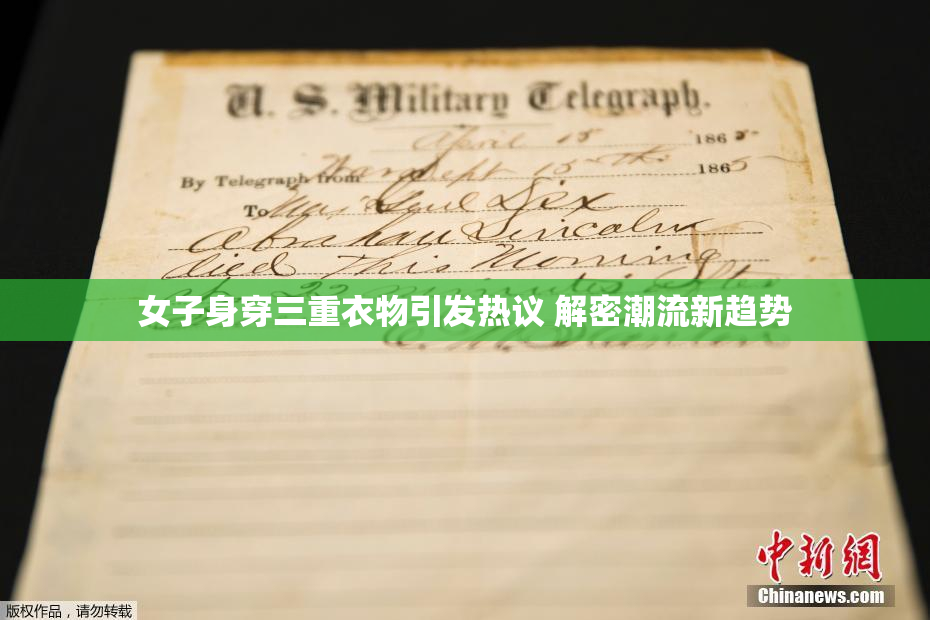 U. S. Military Telegraph.
April 15 1865
By Telegraph from War Dept 15th 1865
To Maj Genl Dix
Abraham Lincoln
died This Morning
22 minutes after
女子身穿三重衣物引发热议 解密潮流新趋势
中新网
Chinanews.com
版权作品，请勿转载